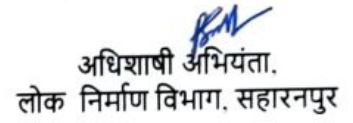 अधिशाषी अभियंता,
लोक निर्माण विभाग, सहारनपुर